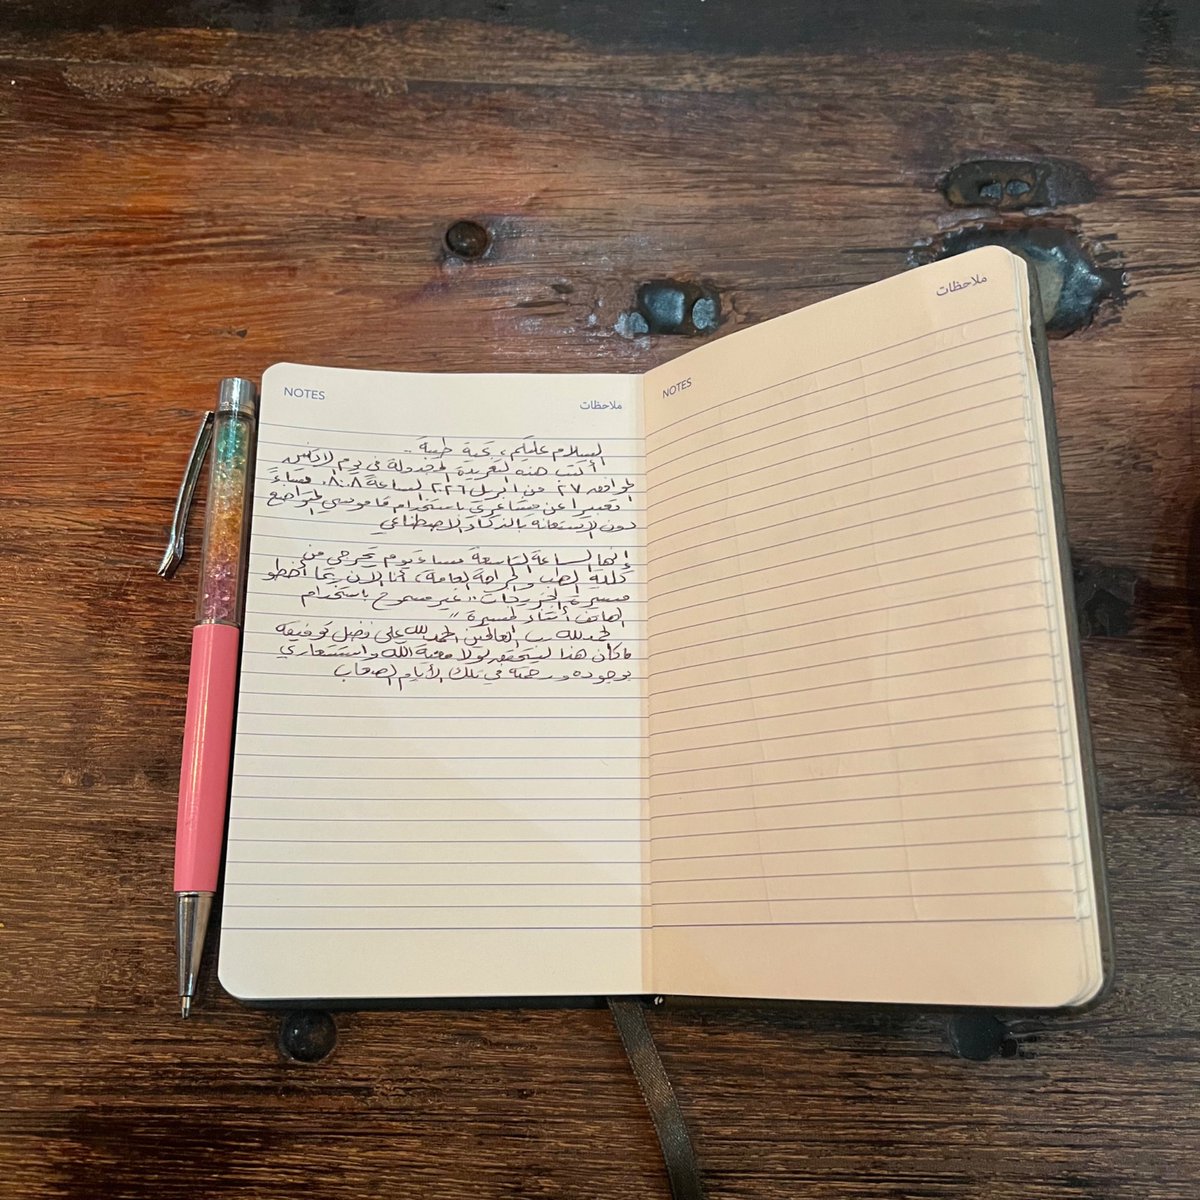 NOTES
ملاحظات
السلام عليكم، تحية طيبة..
أكتب هذه التغريدة المجدولة في يوم الاثنين
الموافق ٢٧ من ابريل ٢٠٢٦ الساعة ٨:٠٨ مساءً
تعبيراً عن مشاعري باستخدام قاموسي المتواضع
دون الاستعانة بالذكاء الاصطناعي
إنها الساعة التاسعة مساء يوم تخرجي من
كلية الطب والجراحة العامة، أنا الآن ربما أخطو
مسيرة الخريجات "غير مسموح باستخدام
الهاتف أثناء المسيرة"
الحمدلله رب العالمين الحمدلله على فضل توفيقه
ما كان هذا ليتحقق لولا معية الله واستشعاري
بوجوده ورحمته في تلك الأيام الصعاب
NOTES
ملاحظات